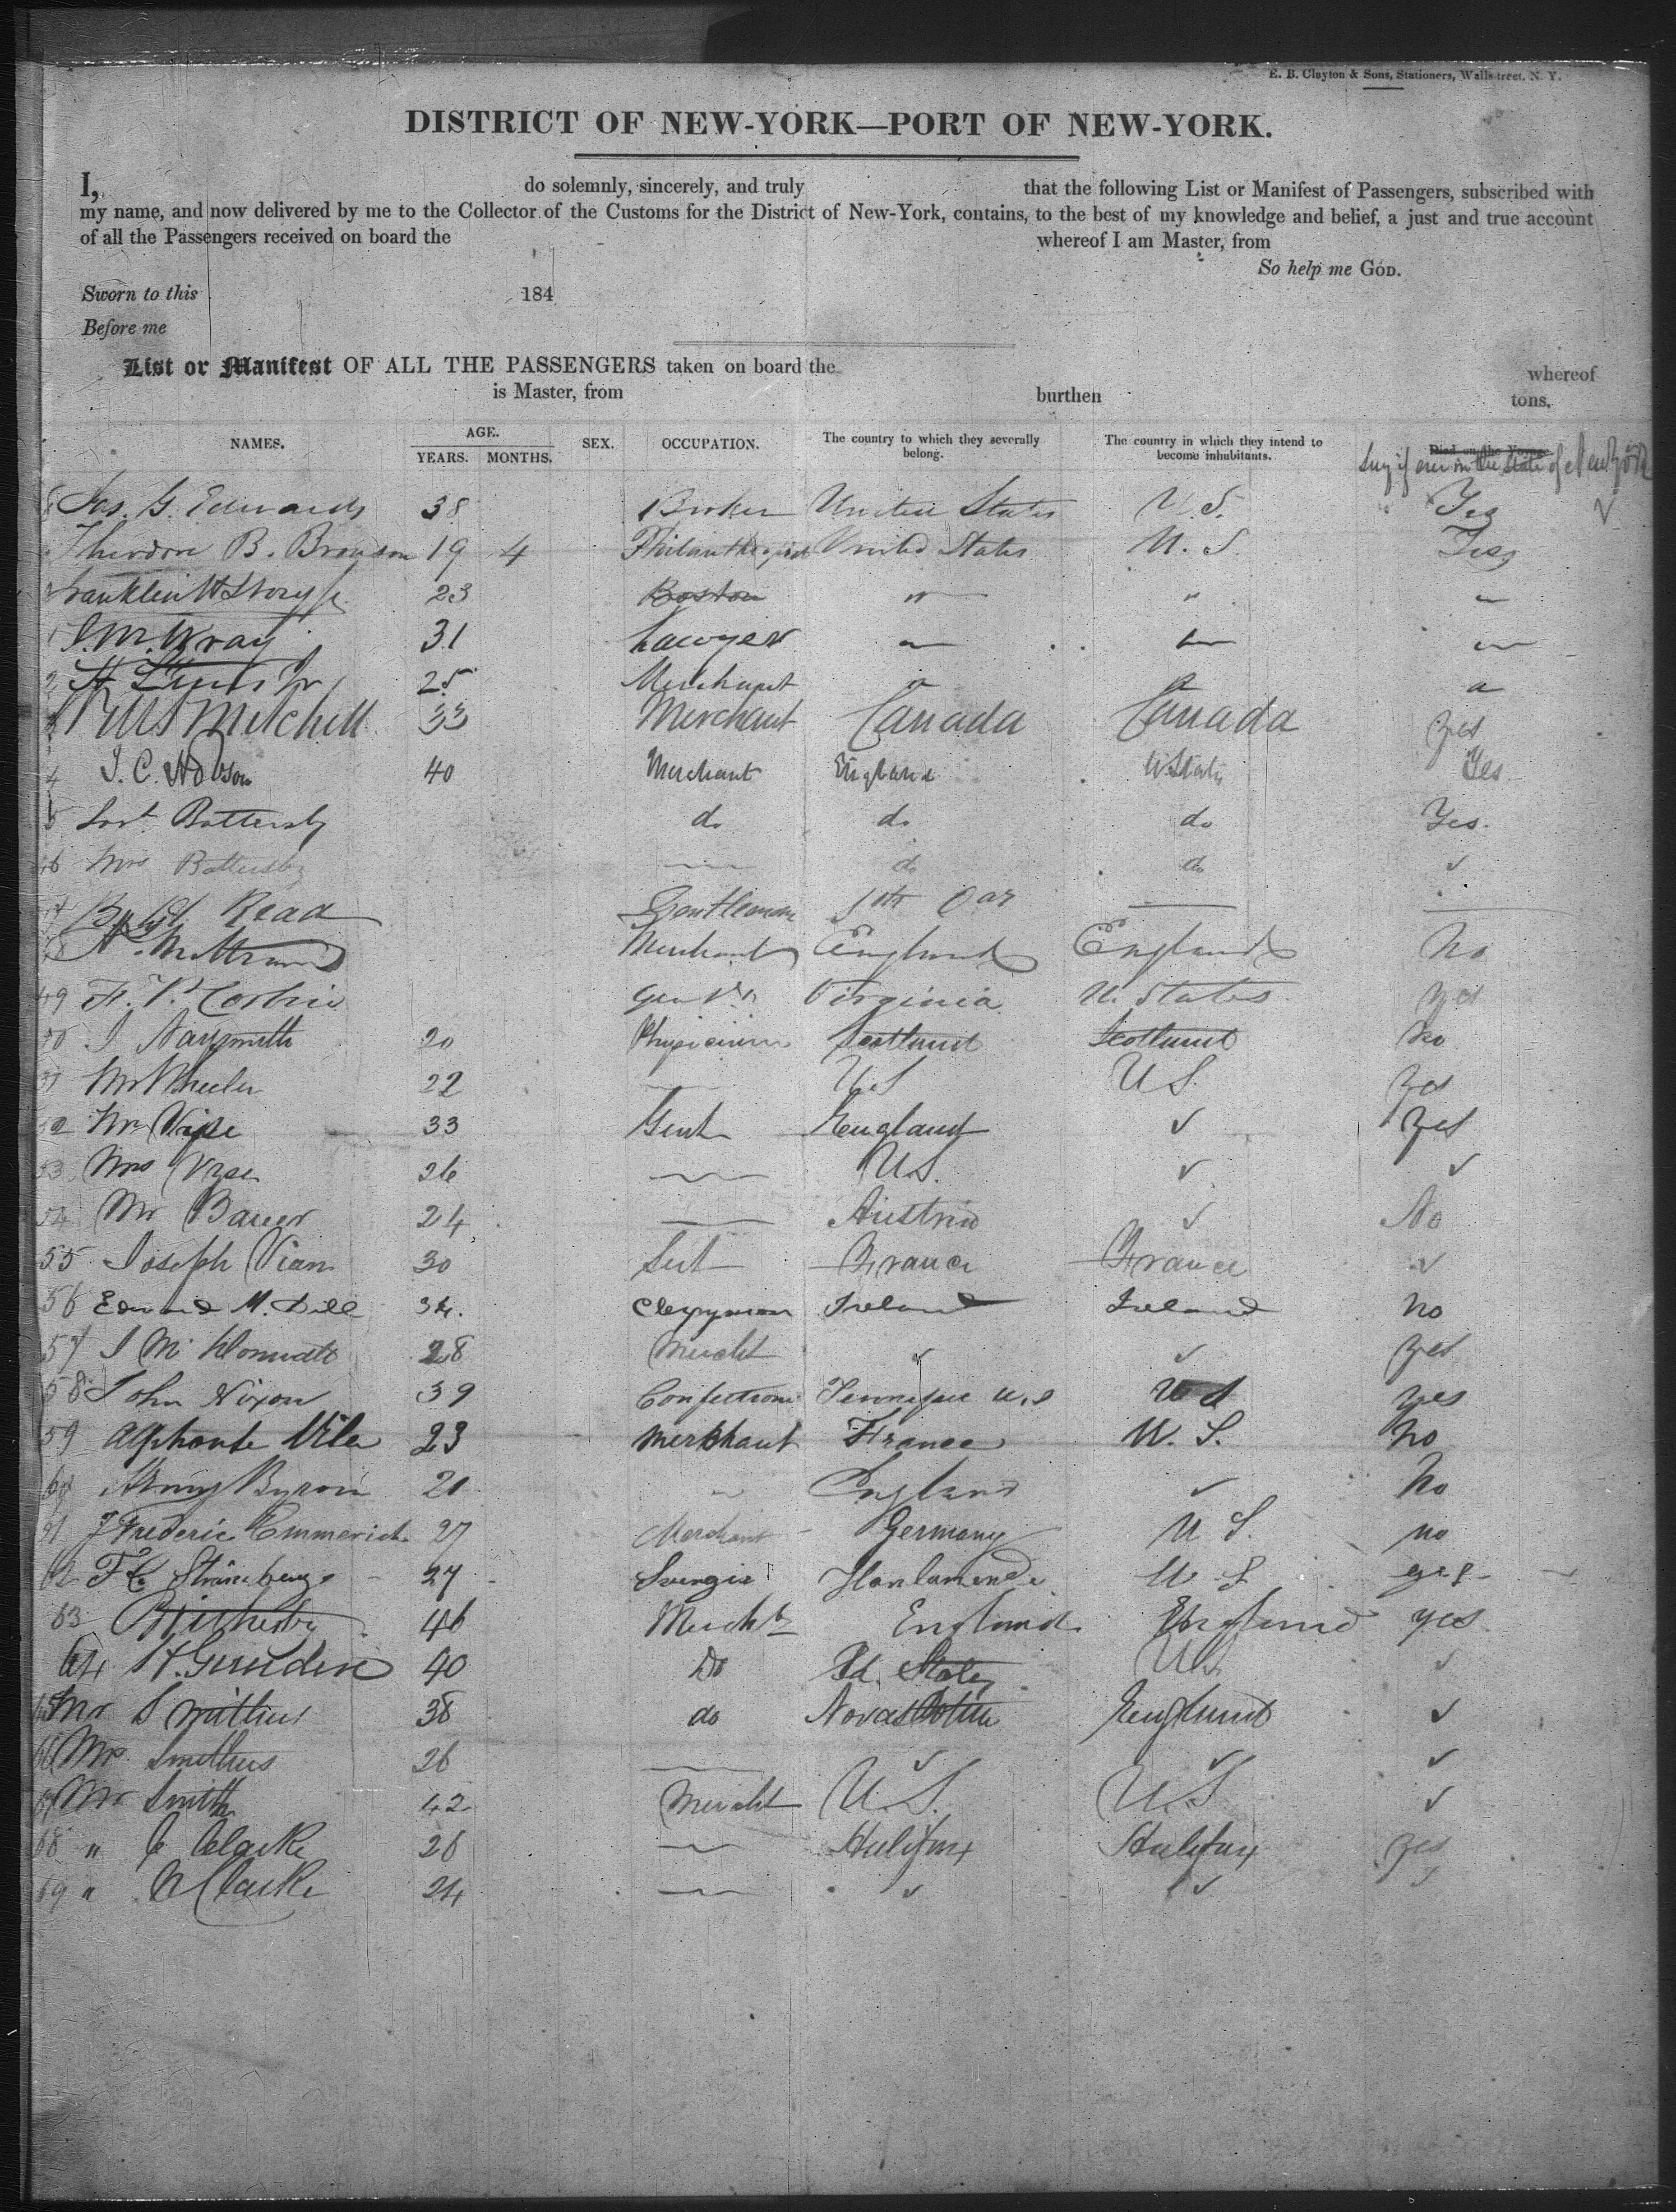 E. B. Clayton & Sons, Stationers, Wall-street, N. Y.
DISTRICT OF NEW-YORK—PORT OF NEW-YORK.
I, do solemnly, sincerely, and truly that the following List or Manifest of Passengers, subscribed with
my name, and now delivered by me to the Collector of the Customs for the District of New-York, contains, to the best of my knowledge and belief, a just and true account
of all the Passengers received on board the whereof I am Master, from
So help me GOD.
Sworn to this 184
Before me
List or Manifest OF ALL THE PASSENGERS taken on board the whereof
is Master, from burthen tons,
NAMES. AGE. YEARS. MONTHS. SEX. OCCUPATION. The country to which they severally belong. The country in which they intend to become inhabitants. Died on the Voyage
Say if ever in the State of New York
Jas. G. Edwards 38 Broker United States U.S. Yes
Theodore B. Bronson 19 4 United States U.S. Yes
23 Boston " "
J.M. Wray 31 Lawyer
25 Merchant
Mitchell 33 Merchant Canada Canada Yes
4 J. C. 40 Merchant England U. States Yes
5 Battersby do do do Yes.
46 Mrs Battersby do do ✓
Read Gentleman
Merchant England England No
49 F. P. Corbin Virginia U. States Yes
J Naysmith 20 Physician Scotland Scotland No
Mr Wheeler 22 U.S U S. Yes
52 Mr 33 Gent England ✓ Yes
53 Mrs 26 U.S. ✓ ✓
54 Mr Bauer 24 Austria ✓ No
55 Joseph Vian 30 France France ✓
56 Edward M. Dill 34. Clergyman Ireland Ireland No
57 J Mc 28 Mercht ✓ ✓ Yes
58 John Nixon 39 U.S U S yes
59 Alphonse Vila 23 Merchant France U. S. No
60 Byron 21 England ✓ No
61 J Frederic Emmerich 27 Merchant Germany U S. no
62 27 U. S yes
63 46 Mercht England England yes
64 H. 40 Do U S ✓
65 Mr Smithers 38 do Nova Scotia England ✓
66 Mrs Smithers 26 ✓ ✓ ✓
67 Mr Smith 42 Mercht U. S. U. S ✓
68 " C Clarke 26 Halifax Halifax Yes
69 " Clarke 24 ✓ ✓